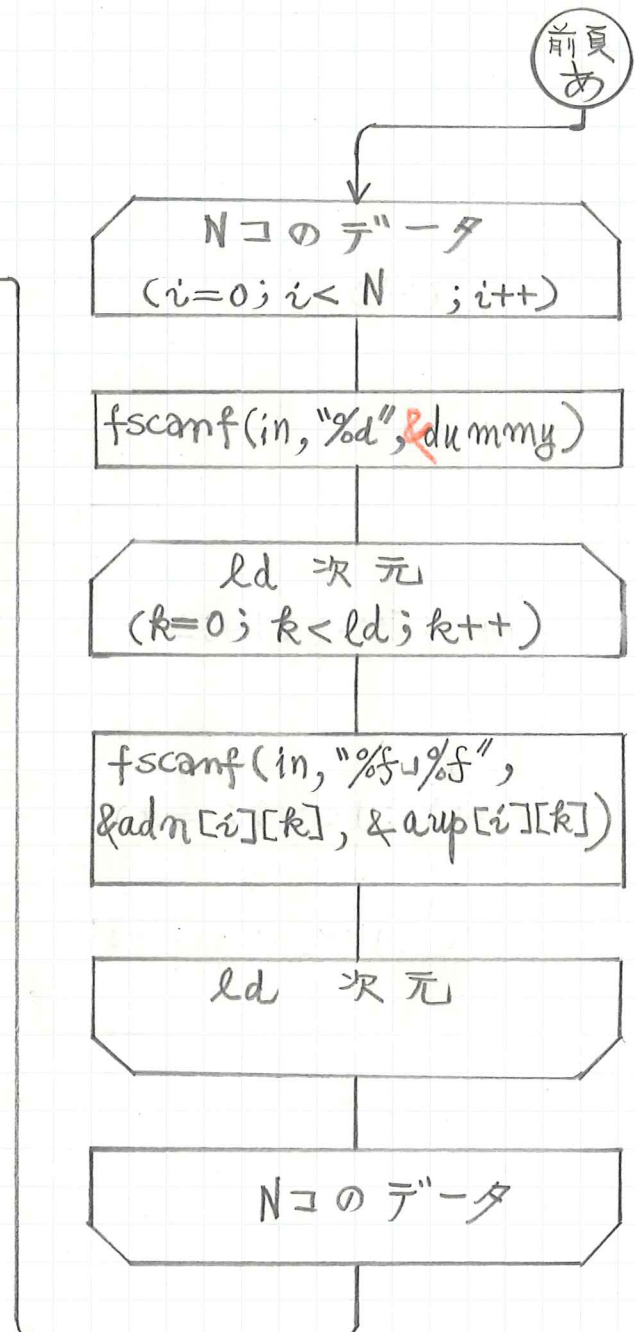 前頁
あ
Nコのデータ
(i=0; i< N ; i++)
fscanf(in, "%d", &dummy)
ld 次元
(k=0; k<ld; k++)
fscanf(in, "%f␣%f",
&adn[i][k], &aup[i][k])
ld 次元
Nコのデータ